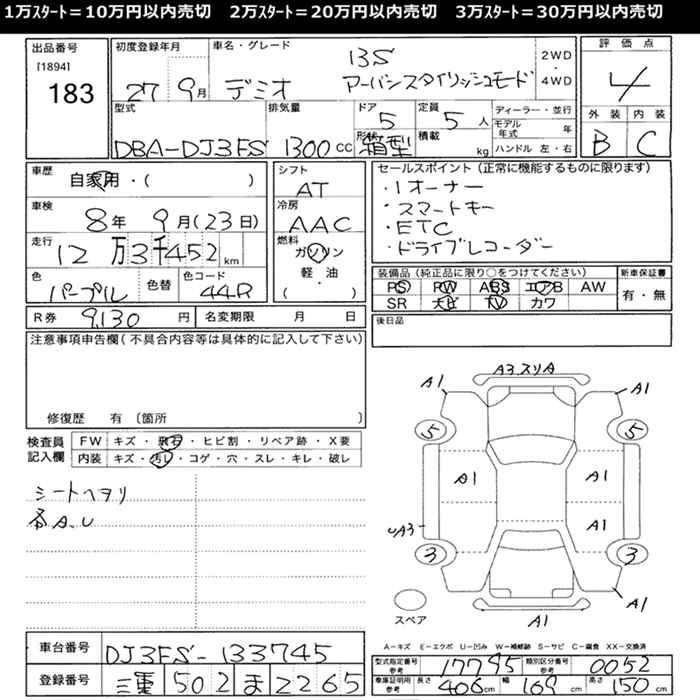 1万スタート=10万円以内売切　2万スタート=20万円以内売切　3万スタート=30万円以内売切
出品番号
[1894]
183
初度登録年月
27 9月
車名・グレード
デミオ
13S
アーバンスタイリッシュモード
2WD
・
4WD
評価点
4
外装 内装
B C
型式
DBA-DJ3FS
排気量
1300 CC
ドア
5
形状
箱型
定員
5人
積載
kg
ディーラー・並行
モデル年式 年
ハンドル 左・右
車歴
自家用・( )
車検
8年 9月(23日)
走行
12万3千452km
色
パープル
色替
色コード
44R
シフト
AT
冷房
AAC
燃料
ガソリン
軽・油
・
( )
セールスポイント(正常に機能するものに限ります)
・1オーナー
・スマートキー
・ETC
・ドライブレコーダー
装備品(純正品に限り○をつけてください)
PS PW ABS エアB AW
SR ナビ TV カワ
新車保証書
有・無
R券 9,130 円
名変期限 月 日
後日品
注意事項申告欄(不具合内容等は具体的に記入して下さい)
修復歴 有 (箇所 )
検査員
記入欄
FW キズ・飛石・ヒビ割・リペア跡・X要
内装 キズ・汚レ・コゲ・穴・スレ・キレ・破レ
シートヘタリ
各A.U
A3.スリA
A1 A1
5 5
A1 A1
A1
UA3
3 3
A1
スペア
A1
A-キズ E-エクボ U-凹み W-補修跡 S-サビ C-腐食 XX-交換済
車台番号
DJ3FS-133745
登録番号
三重 502 ま 2265
型式指定番号
参考
17795
類別区分番号
参考
0052
車庫証明用
参考
長さ 406cm
幅 169cm
高さ 150cm